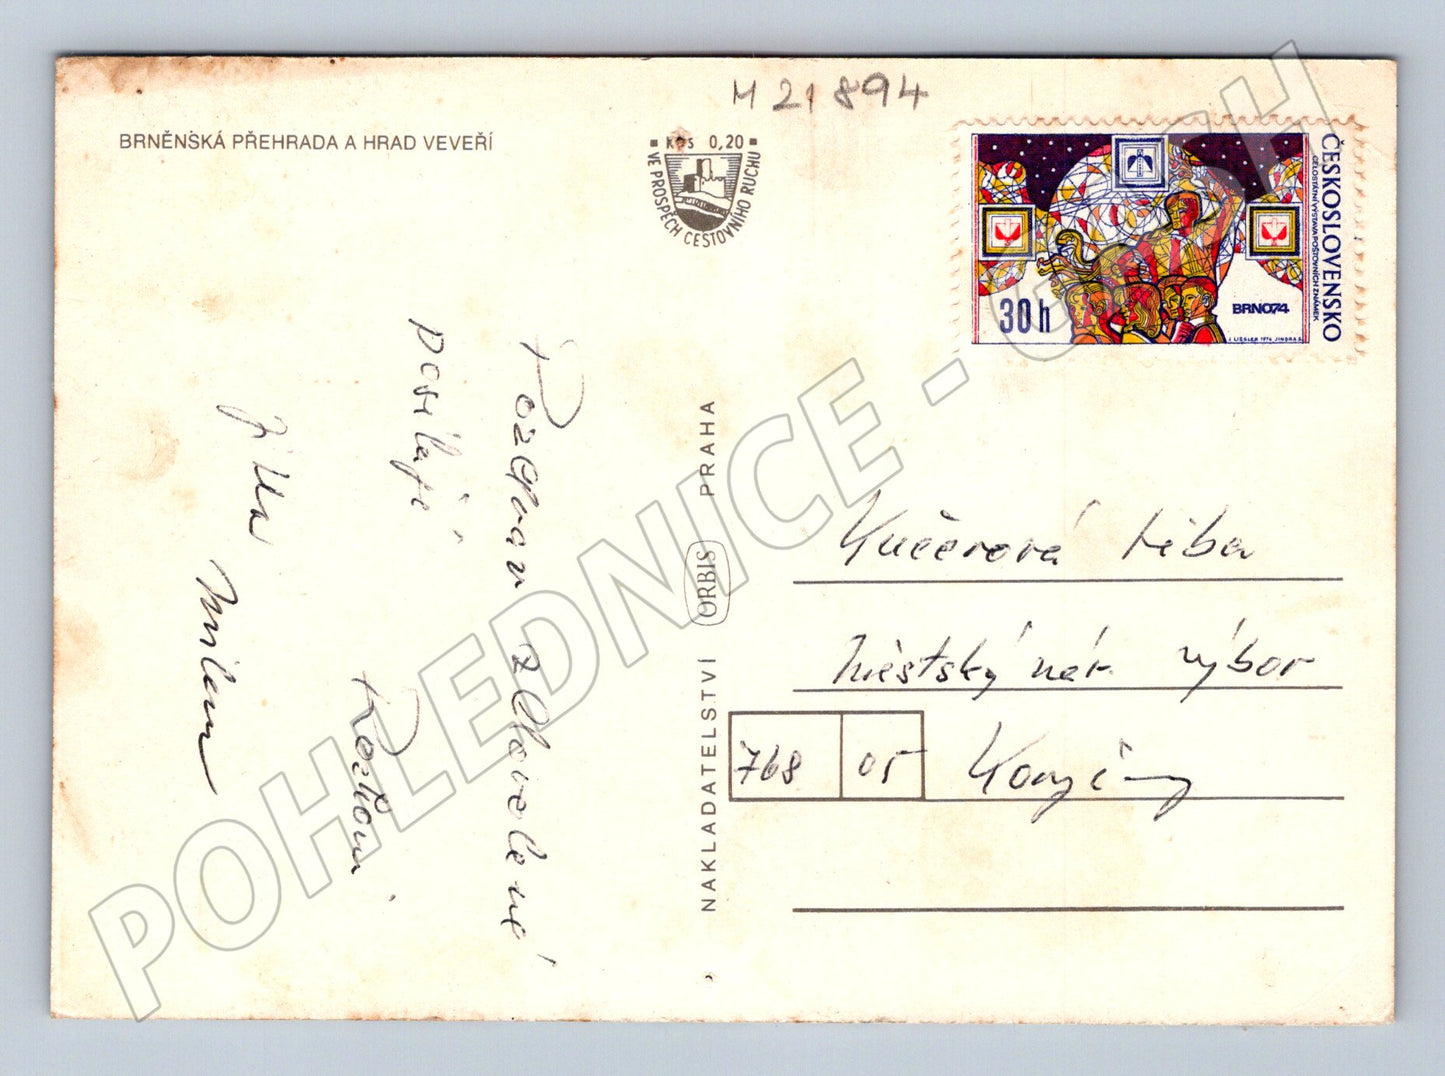 M 21 894
BRNĚNSKÁ PŘEHRADA A HRAD VEVEŘÍ
Kčs 0,20
VE PROSPĚCH CESTOVNÍHO RUCHU
ČESKOSLOVENSKO
CELOSTÁTNÍ VÝSTAVA POŠTOVNÍCH ZNÁMEK
30 h
BRNO74
J. LIESLER 1974 JINDRA S.
Pozdrav z dovolené
posílají
Jitka
Milan
NAKLADATELSTVÍ ORBIS PRAHA
Kučerová Liba
Městský nár. výbor
768 05 Koryčany
POHLEDNICE -